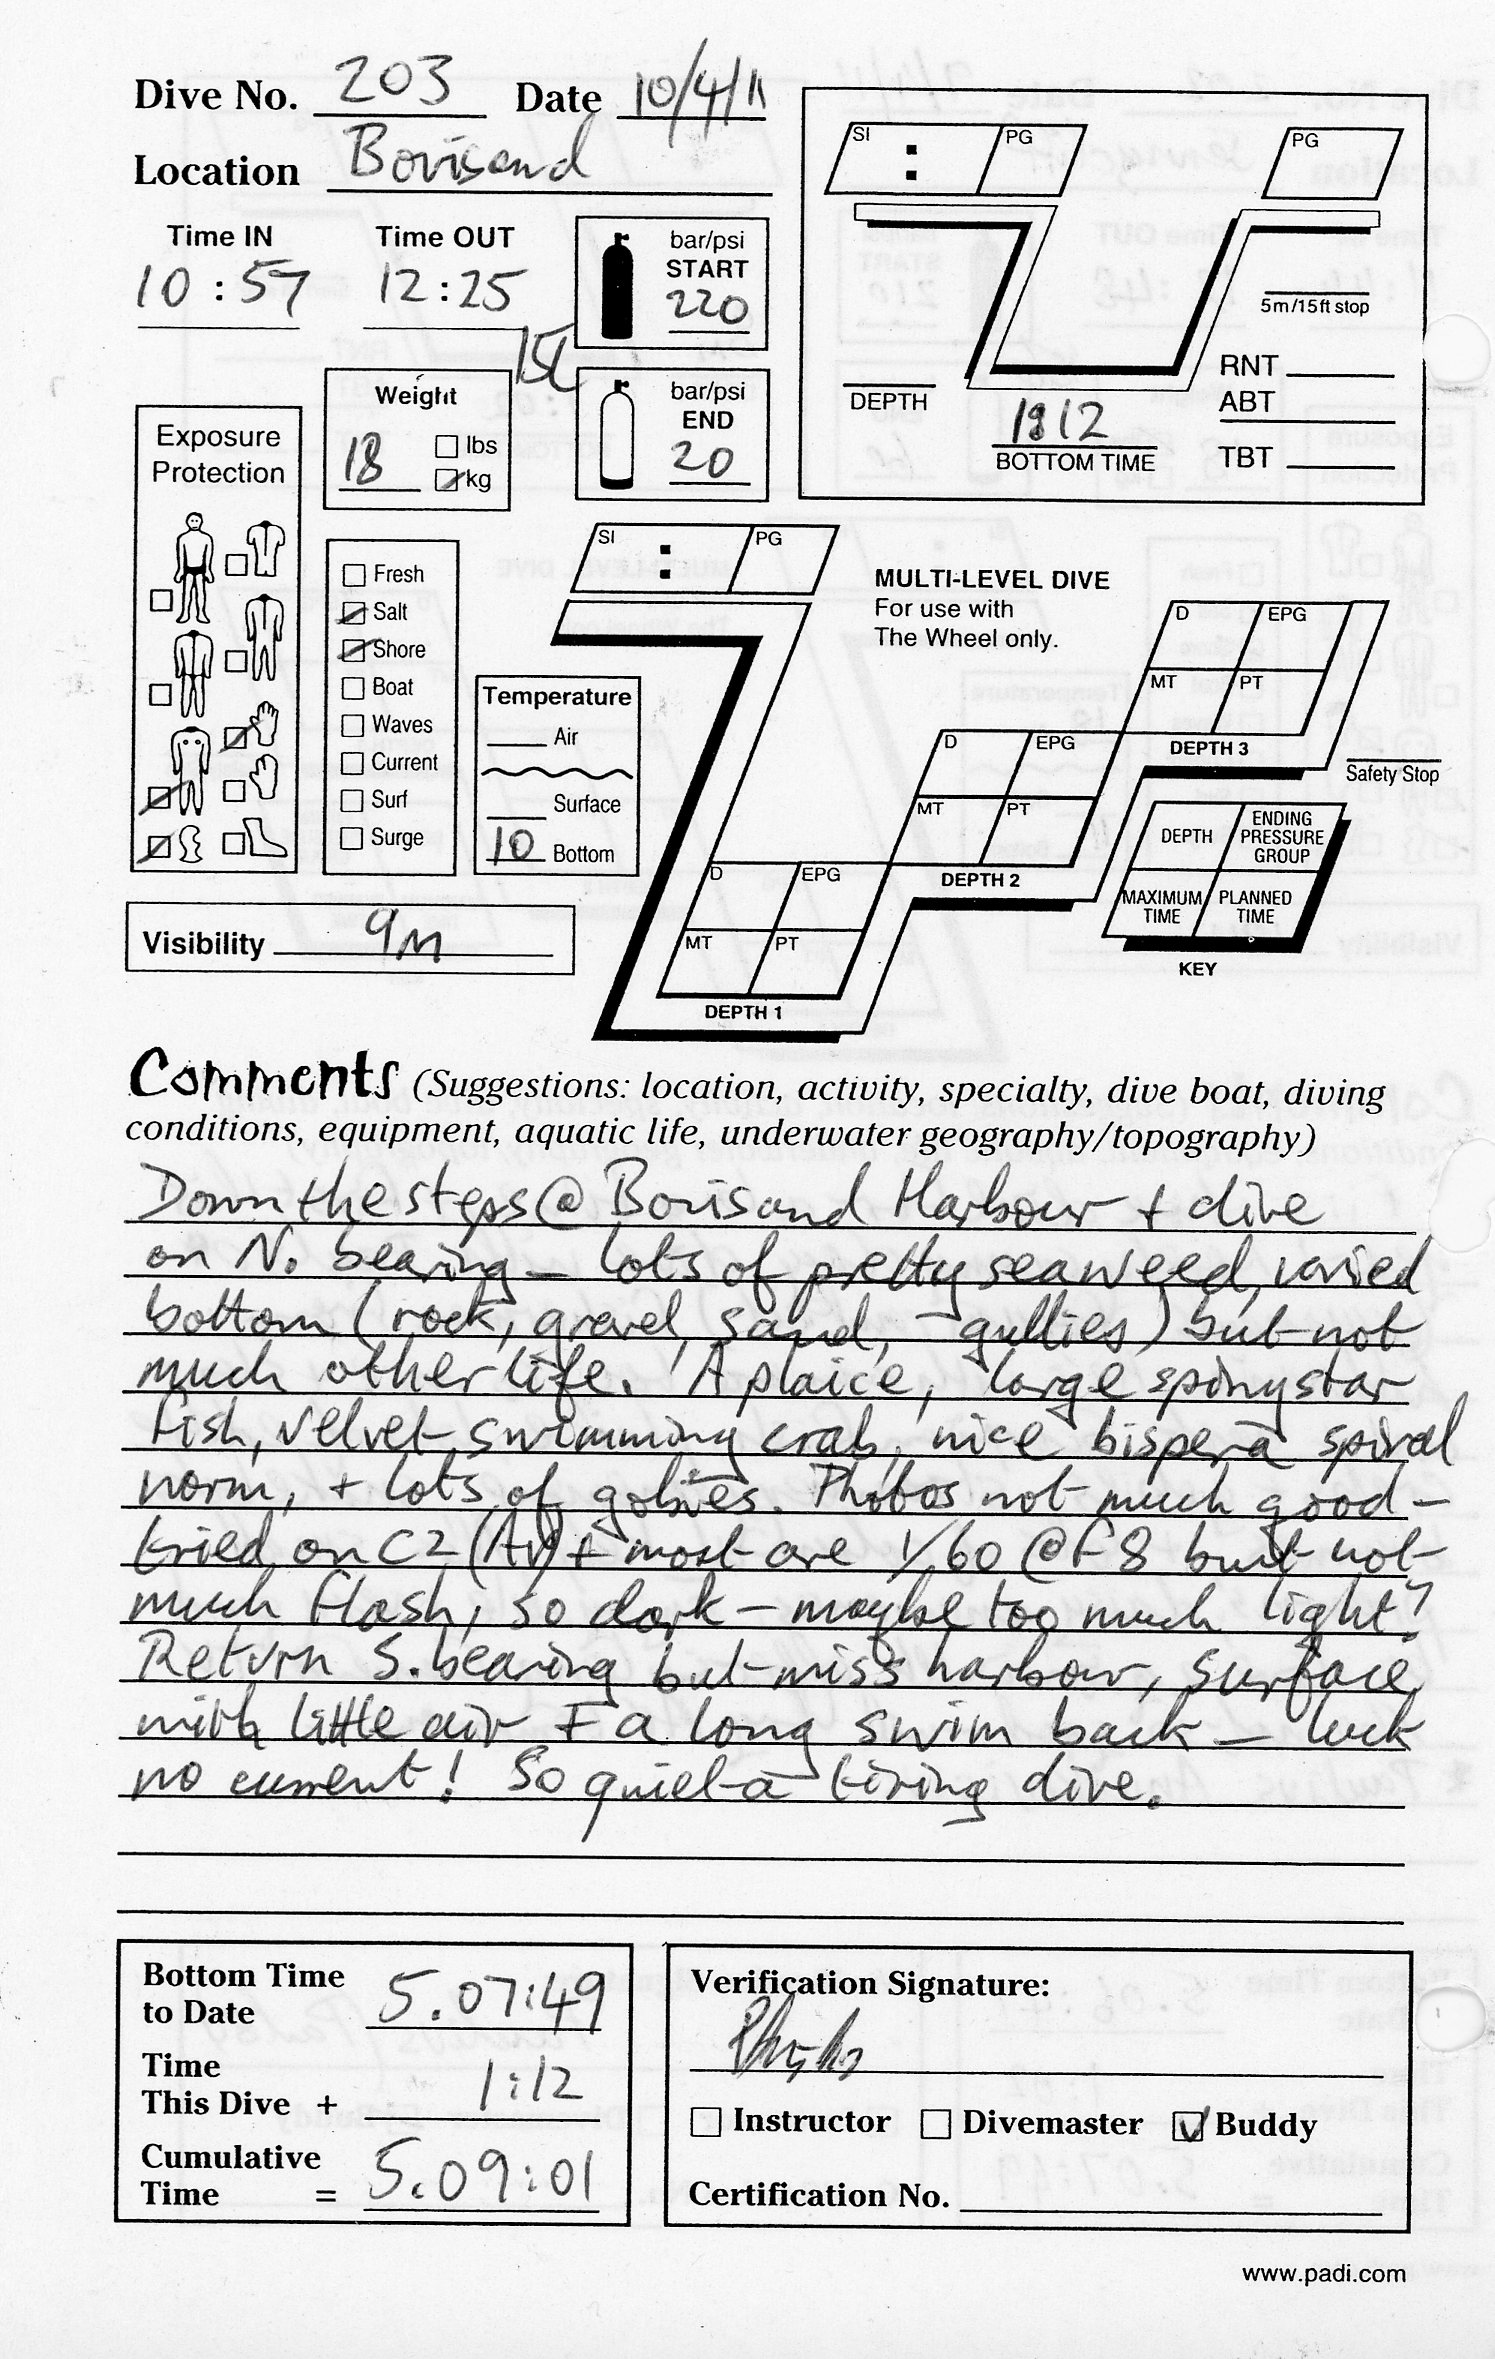 Dive No. 203 Date 10/4/11
Location Bovisand
Time IN Time OUT
10:57 12:25
bar/psi
START
220
15L
bar/psi
END
20
Weight
18
lbs
kg
Exposure
Protection
SI : PG
PG
5m/15ft stop
DEPTH
12
BOTTOM TIME
RNT
ABT
TBT
Fresh
Salt
Shore
Boat
Waves
Current
Surf
Surge
Temperature
Air
Surface
10 Bottom
Visibility 9m
SI : PG
MULTI-LEVEL DIVE
For use with
The Wheel only.
D EPG
MT PT
DEPTH 3
Safety Stop
D EPG
MT PT
DEPTH 2
D EPG
MT PT
DEPTH 1
DEPTH
ENDING
PRESSURE
GROUP
MAXIMUM
TIME
PLANNED
TIME
KEY
Comments (Suggestions: location, activity, specialty, dive boat, diving
conditions, equipment, aquatic life, underwater geography/topography)
Down the steps @ Bovisand Harbour + dive
on N. bearing – lots of pretty seaweed, varied
bottom (rock, gravel, sand, – gullies) but not
much other life. A plaice, large spiny star
fish, velvet swimming crab, nice bispera spiral
worm, + lots of gobies. Photos not much good –
tried on C2 (Av) + most are 1/60 @ F8 but not
much flash, so dark – maybe too much light?
Return S. bearing but miss harbour, surface
with little air + a long swim back – luck
no current! So quiet a tiring dive.
Bottom Time
to Date 5.07:49
Time
This Dive + 1:12
Cumulative
Time = 5.09:01
Verification Signature:
Instructor Divemaster Buddy
Certification No.
www.padi.com